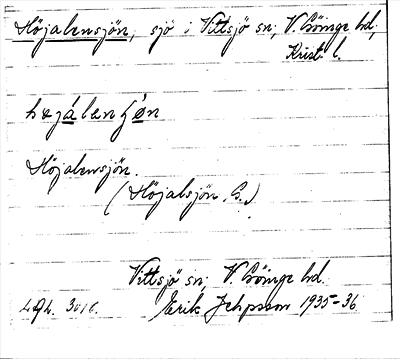 Höjalensjön, sjö i Vittsjö sn, V. Göinge hd,
Krist. l.
Höjalensjön.
(Höjalsjön, G.)
Vittsjö sn, V. Göinge hd.
Erik Jeppsson 1935-36